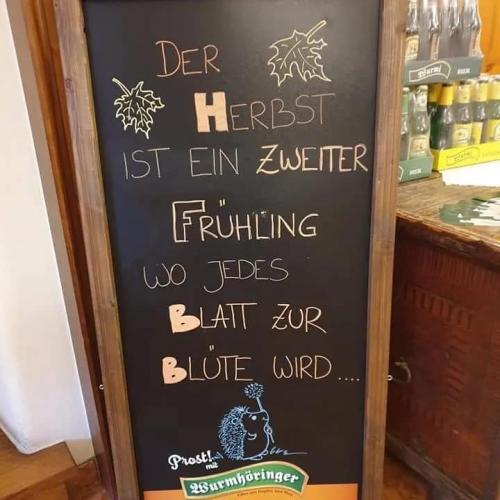 DER
HERBST
IST EIN ZWEITER
FRÜHLING
WO JEDES
BLATT ZUR
BLÜTE WIRD....
Prost! mit
Wurmhöringer